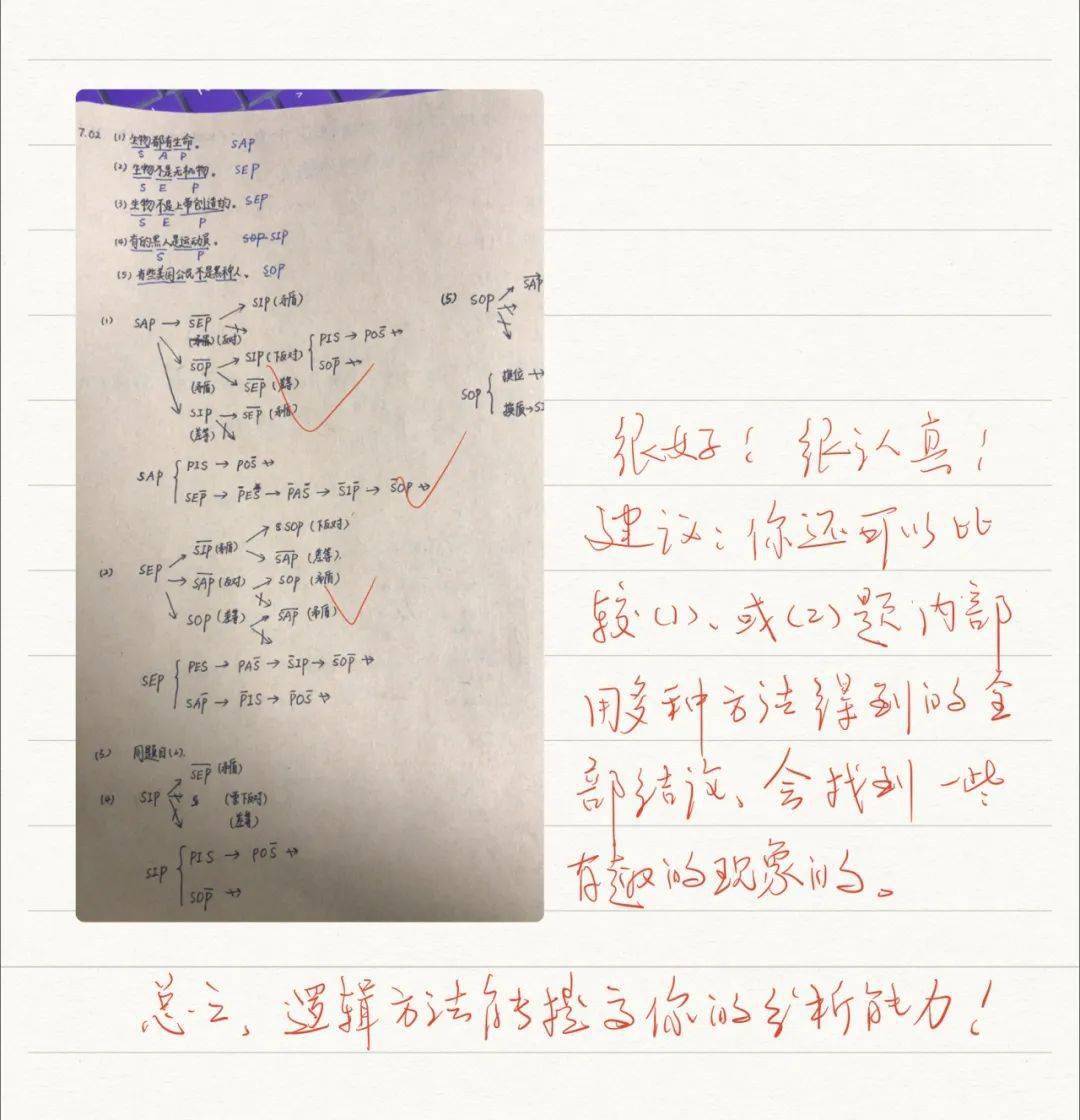 7.02 (1) 生物都有生命。 SAP
S A P
(2) 生物不是无机物。 SEP
S E P
(3) 生物不是上帝创造的。 SEP
S E P
(4) 有的黑人是运动员。 SOP SIP
S P
(5) 有些美国公民不是黑种人。 SOP
(1) SAP → S̅E̅P̅ → SIP (矛盾)
(反对)
S̅O̅P̅ → SIP (下反对) { PIS → POS̅ ↛
SOP̅ ↛
(矛盾) → S̅E̅P̅ (差等)
SIP → S̅E̅P̅ (矛盾)
(差等)
SAP { PIS → POS̅ ↛
SEP̅ → P̅ES → P̅AS̅ → S̅IP̅ → S̅OP ↛
(2) SEP → S̅I̅P̅ (矛盾) → SOP (下反对)
→ S̅A̅P̅ (差等).
→ S̅A̅P̅ (反对) → SOP (矛盾)
→ SOP (差等) → S̅A̅P̅ (矛盾)
SEP { PES → PAS̅ → S̅IP → S̅OP̅ ↛
SAP̅ → P̅IS → P̅OS̅ ↛
(3) 同题目(2).
(4) SIP → S̅E̅P̅ (矛盾)
(下反对)
(差等)
SIP { PIS → POS̅ ↛
SOP̅ ↛
(5) SOP → S̅A̅P̅
SOP { 换位 ↛
换质 → SI
很好！很认真！
建议：你还可以比
较(1)、或(2)题内部
用多种方法得到的全
部结论、会找到一些
有趣的现象的。
总之，逻辑方法能提高你的分析能力！